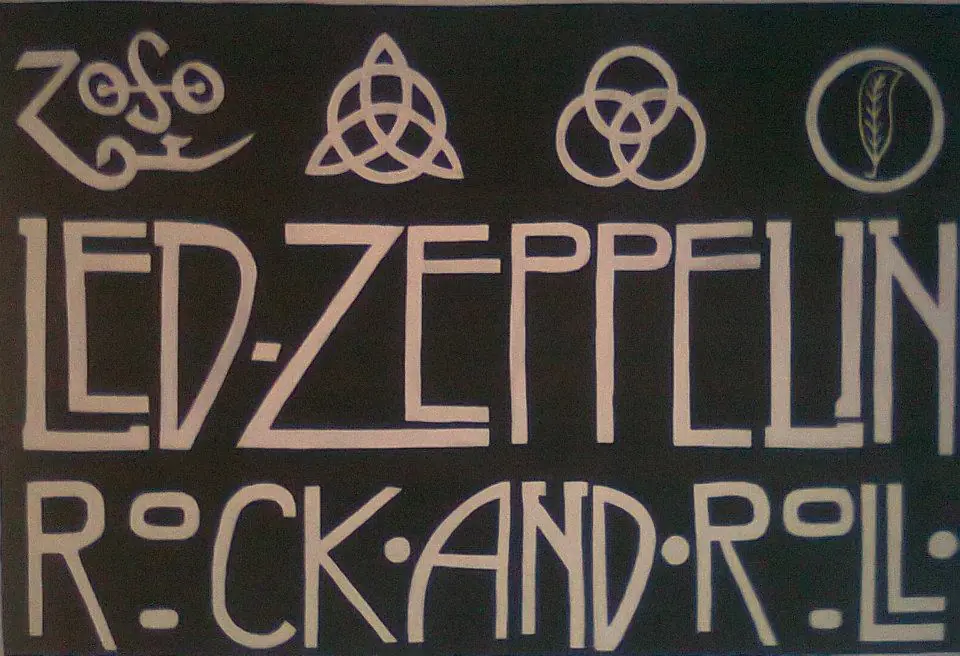 ZOSO
LED·ZEPPELIN
ROCK·AND·ROLL·